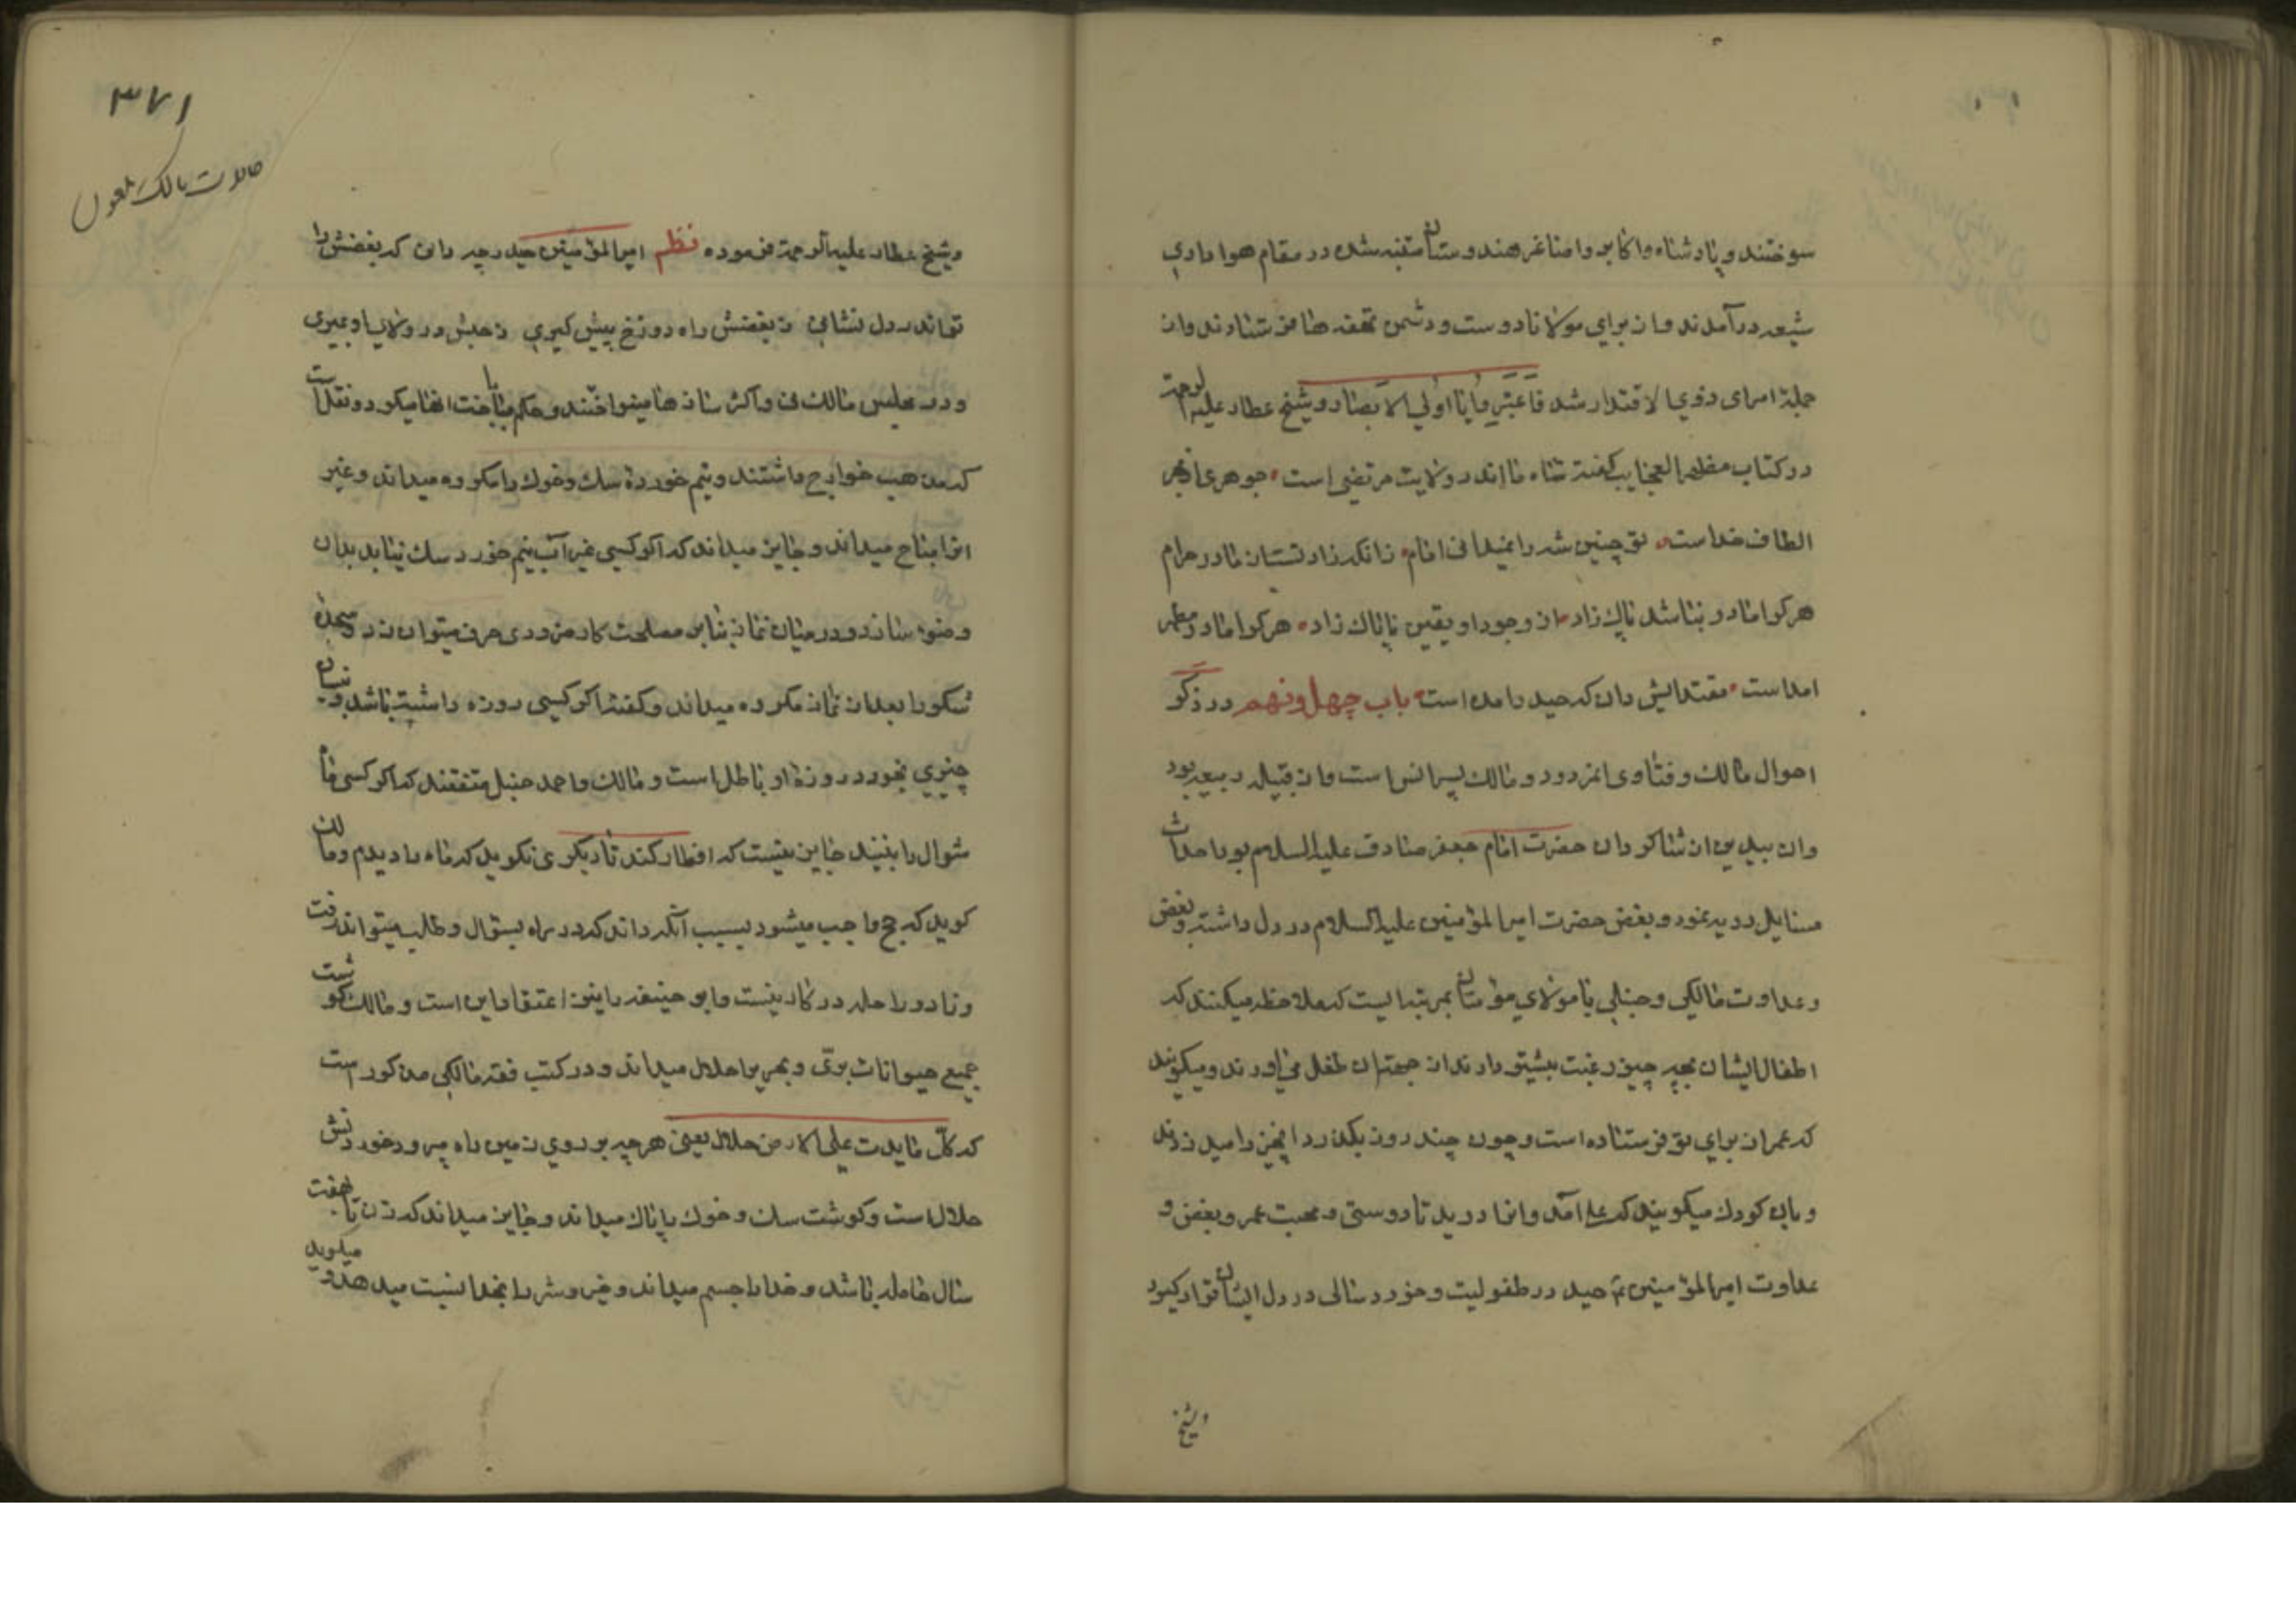 سوختند و پادشاه و اکابر و اصاغر هندوستان متنبه شده در مقام هواداری
شیعه درآمدند و از برای مولانا دوست و دشمن تحفه ها میفرستادند و از
جملهٔ امرای ذوی الاقتدار شد فاعتبروا یا اولی الابصار و شیخ عطار علیه الرحمة
در کتاب مظهر العجایب گفته شاه ما اندر ولایت مرتضی است جوهر
الطاف خداست تو چنین شه را نمیدانی امام زانکه زادستان مادر حرام
هر کرا مادر نباشد پاک زاد از وجود او یقین ناپاک زاد هر کرا مادر مطهر
امداست مقتدایش دان که حیدر امده است باب چهل و نهم در ذکر
احوال مالک و فتاوی مالک پسر انس است و از قبیله ربیعه بود
و ان بیدین از شاگردان حضرت امام جعفر صادق علیه السلام بود احداث
مسایل ردیه نمود و بغض حضرت امیر المؤمنین علیه السلام در دل داشته و بغض
و عداوت مالکی و حنبلی با مولای مؤمنان بمرتبه ایست که ملاحظه میکنند که
اطفال ایشان بچه چیز رغبت بیشتر دارند از جهة ان طفل می اورند و میکویند
که عمر از برای تو فرستاده است و چون چند روز بکذرد انچیز را میدزدند
و بان کودک میکویند که علی آمد و انرا دزدید تا دوستی و محبت عمر و بغض و
عداوت امیر المؤمنین حیدر در طفولیت و خوردسالی در دل ایشان قرار کیرد
و شیخ
۳۷۱
حالات مالک ملعون
و شیخ عطار علیه الرحمة فرموده نظم امیر المؤمنین حیدر چه دانی که بغضش را
تو اندر دل نشانی ز بغضش راه دوزخ پیش کیری ز حبش در ولای او بمیری
و در مجلس مالک نی و اکثر سازها مینواختند و حکم باباحت انها میکرد و نقل است
که مذهب خوارج داشتند و نیم خوردهٔ سک و خوک را مکروه میداند و غیر
انرا مباح میداند و جایز میداند که اکر کسی غیر آب نیم خورد سک نیابد بدان
وضو سازد و در میان نماز بنابر مصلحت کار ضروری حرف میتوان زد و سجدهٔ
شکر را بعد از نماز مکروه میداند و کفته اکر کسی روزه داشته باشد و بنسیان
چیزی بخورد روزهٔ او باطل است و مالک و احمد حنبل متفقند که اکر کسی ماه
شوال را ببیند جایز نیست که افطار کند تا دیکری نکوید که ماه را دیدم و مالک
کوید که حج واجب میشود بسبب آنکه داند که در راه بسؤال و طلب میتواند رفت
و زاد و راحله در کار نیست و ابو حنیفه را نیز اعتقاد این است و مالک کوشت
جمیع حیوانات بری و بحری را حلال میداند و در کتب فقه مالکی مذکور است
که کل ما یدب علی الارض حلال یعنی هر چه بر روی زمین راه میرود خوردنش
حلال است و کوشت سک و خوک را پاک میداند و جایز میداند که زن تا هفت
سال حامله باشد و خدا را جسم میداند و خیر و شر را بخدا نسبت میدهد و میکوید